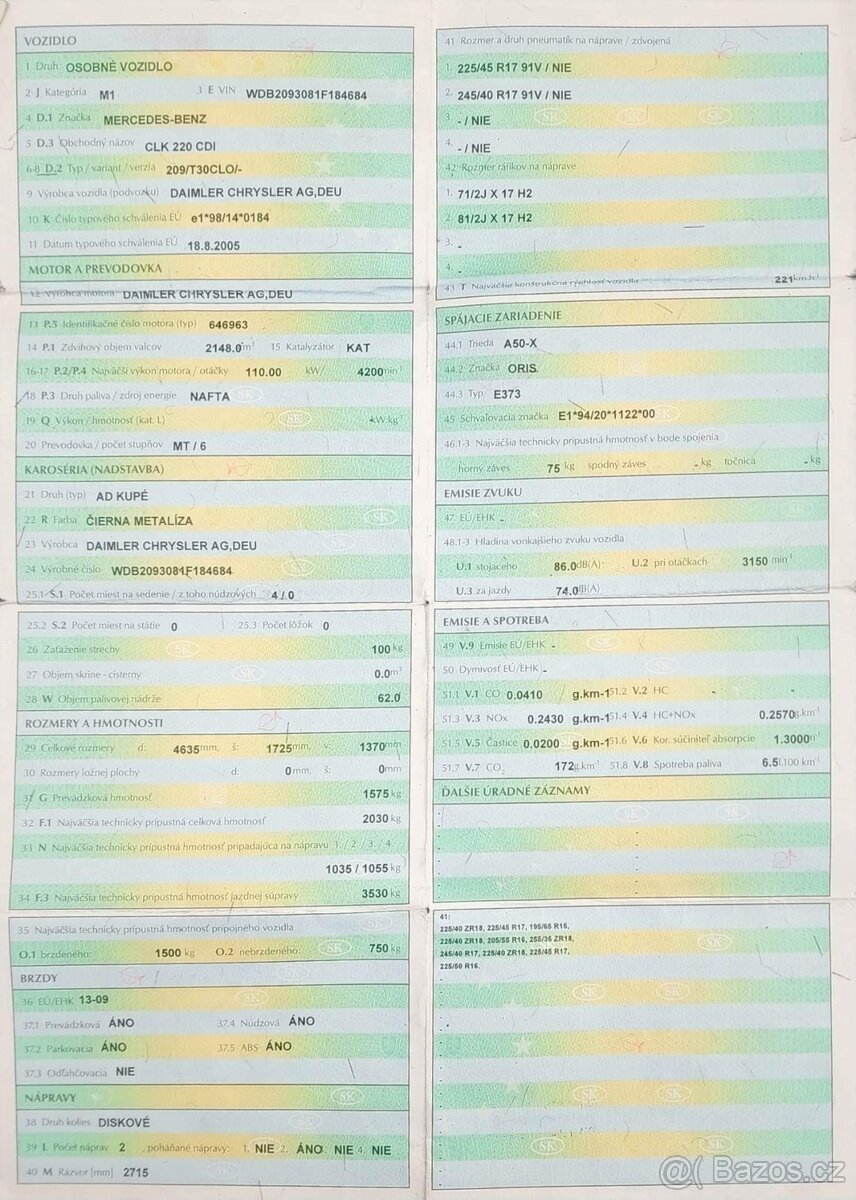 VOZIDLO
1 Druh OSOBNÉ VOZIDLO
2 J Kategória M1 3 E VIN WDB2093081F184684
4 D.1 Značka MERCEDES-BENZ
5 D.3 Obchodný názov CLK 220 CDI
6-8 D.2 Typ / variant / verzia 209/T30CLO/-
9 Výrobca vozidla (podvozku) DAIMLER CHRYSLER AG,DEU
10 K Číslo typového schválenia EÚ e1*98/14*0184
11 Dátum typového schválenia EÚ 18.8.2005
MOTOR A PREVODOVKA
12 Výrobca motora DAIMLER CHRYSLER AG,DEU
13 P.5 Identifikačné číslo motora (typ) 646963
14 P.1 Zdvihový objem valcov 2148.0 cm³ 15 Katalyzátor KAT
16-17 P.2/P.4 Najväčší výkon motora / otáčky 110.00 kW/ 4200 min⁻¹
18 P.3 Druh paliva / zdroj energie NAFTA
19 Q Výkon / hmotnosť (kat. L) kW.kg⁻¹
20 Prevodovka / počet stupňov MT / 6
KAROSÉRIA (NADSTAVBA)
21 Druh (typ) AD KUPÉ
22 R Farba ČIERNA METALÍZA
23 Výrobca DAIMLER CHRYSLER AG,DEU
24 Výrobné číslo WDB2093081F184684
25.1 S.1 Počet miest na sedenie / z toho núdzových 4 / 0
25.2 S.2 Počet miest na státie 0 25.3 Počet lôžok 0
26 Zaťaženie strechy 100 kg
27 Objem skrine - cisterny 0.0 m³
28 W Objem palivovej nádrže 62.0
ROZMERY A HMOTNOSTI
29 Celkové rozmery d: 4635 mm, š: 1725 mm, v: 1370 mm
30 Rozmery ložnej plochy d: 0 mm, š: 0 mm
31 G Prevádzková hmotnosť 1575 kg
32 F.1 Najväčšia technicky prípustná celková hmotnosť 2030 kg
33 N Najväčšia technicky prípustná hmotnosť pripadajúca na nápravu 1. / 2. / 3. / 4.
1035 / 1055 kg
34 F.3 Najväčšia technicky prípustná hmotnosť jazdnej súpravy 3530 kg
35 Najväčšia technicky prípustná hmotnosť prípojného vozidla
O.1 brzdeného: 1500 kg O.2 nebrzdeného: 750 kg
BRZDY
36 EÚ/EHK 13-09
37.1 Prevádzková ÁNO 37.4 Núdzová ÁNO
37.2 Parkovacia ÁNO 37.5 ABS ÁNO
37.3 Odľahčovacia NIE
NÁPRAVY
38 Druh kolies DISKOVÉ
39 L Počet náprav 2 , poháňané nápravy: 1. NIE 2. ÁNO NIE 4. NIE
40 M Rázvor [mm] 2715
41 Rozmer a druh pneumatík na náprave / zdvojená
1. 225/45 R17 91V / NIE
2. 245/40 R17 91V / NIE
3. - / NIE
4. - / NIE
42 Rozmer ráfikov na náprave
1. 71/2J X 17 H2
2. 81/2J X 17 H2
3. -
4. -
43 T Najväčšia konštrukčná rýchlosť vozidla 221 km.h⁻¹
SPÁJACIE ZARIADENIE
44.1 Trieda A50-X
44.2 Značka ORIS
44.3 Typ E373
45 Schvaľovacia značka E1*94/20*1122*00
46.1-3 Najväčšia technicky prípustná hmotnosť v bode spojenia
horný záves 75 kg spodný záves - kg točnica - kg
EMISIE ZVUKU
47 EÚ/EHK -
48.1-3 Hladina vonkajšieho zvuku vozidla
U.1 stojaceho 86.0 dB(A) U.2 pri otáčkach 3150 min⁻¹
U.3 za jazdy 74.0 dB(A)
EMISIE A SPOTREBA
49 V.9 Emisie EÚ/EHK -
50 Dymivosť EÚ/EHK -
51.1 V.1 CO 0.0410 g.km-1 51.2 V.2 HC - -
51.3 V.3 NOx 0.2430 g.km-1 51.4 V.4 HC+NOx 0.2570 g.km⁻¹
51.5 V.5 Častice 0.0200 g.km-1 51.6 V.6 Kor. súčiniteľ absorpcie 1.3000 m⁻¹
51.7 V.7 CO₂ 172 g.km⁻¹ 51.8 V.8 Spotreba paliva 6.5 l.100 km⁻¹
ĎALŠIE ÚRADNÉ ZÁZNAMY
41:
225/40 ZR18, 225/45 R17, 195/65 R15,
225/40 ZR18, 205/55 R16, 255/35 ZR18,
245/40 R17, 225/40 ZR18, 225/45 R17,
225/50 R16.
@( Bazos.cz